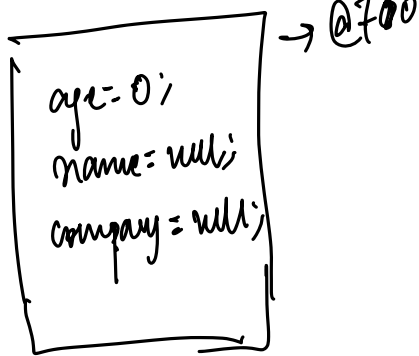 → @700
age = 0;
name = null;
company = null;